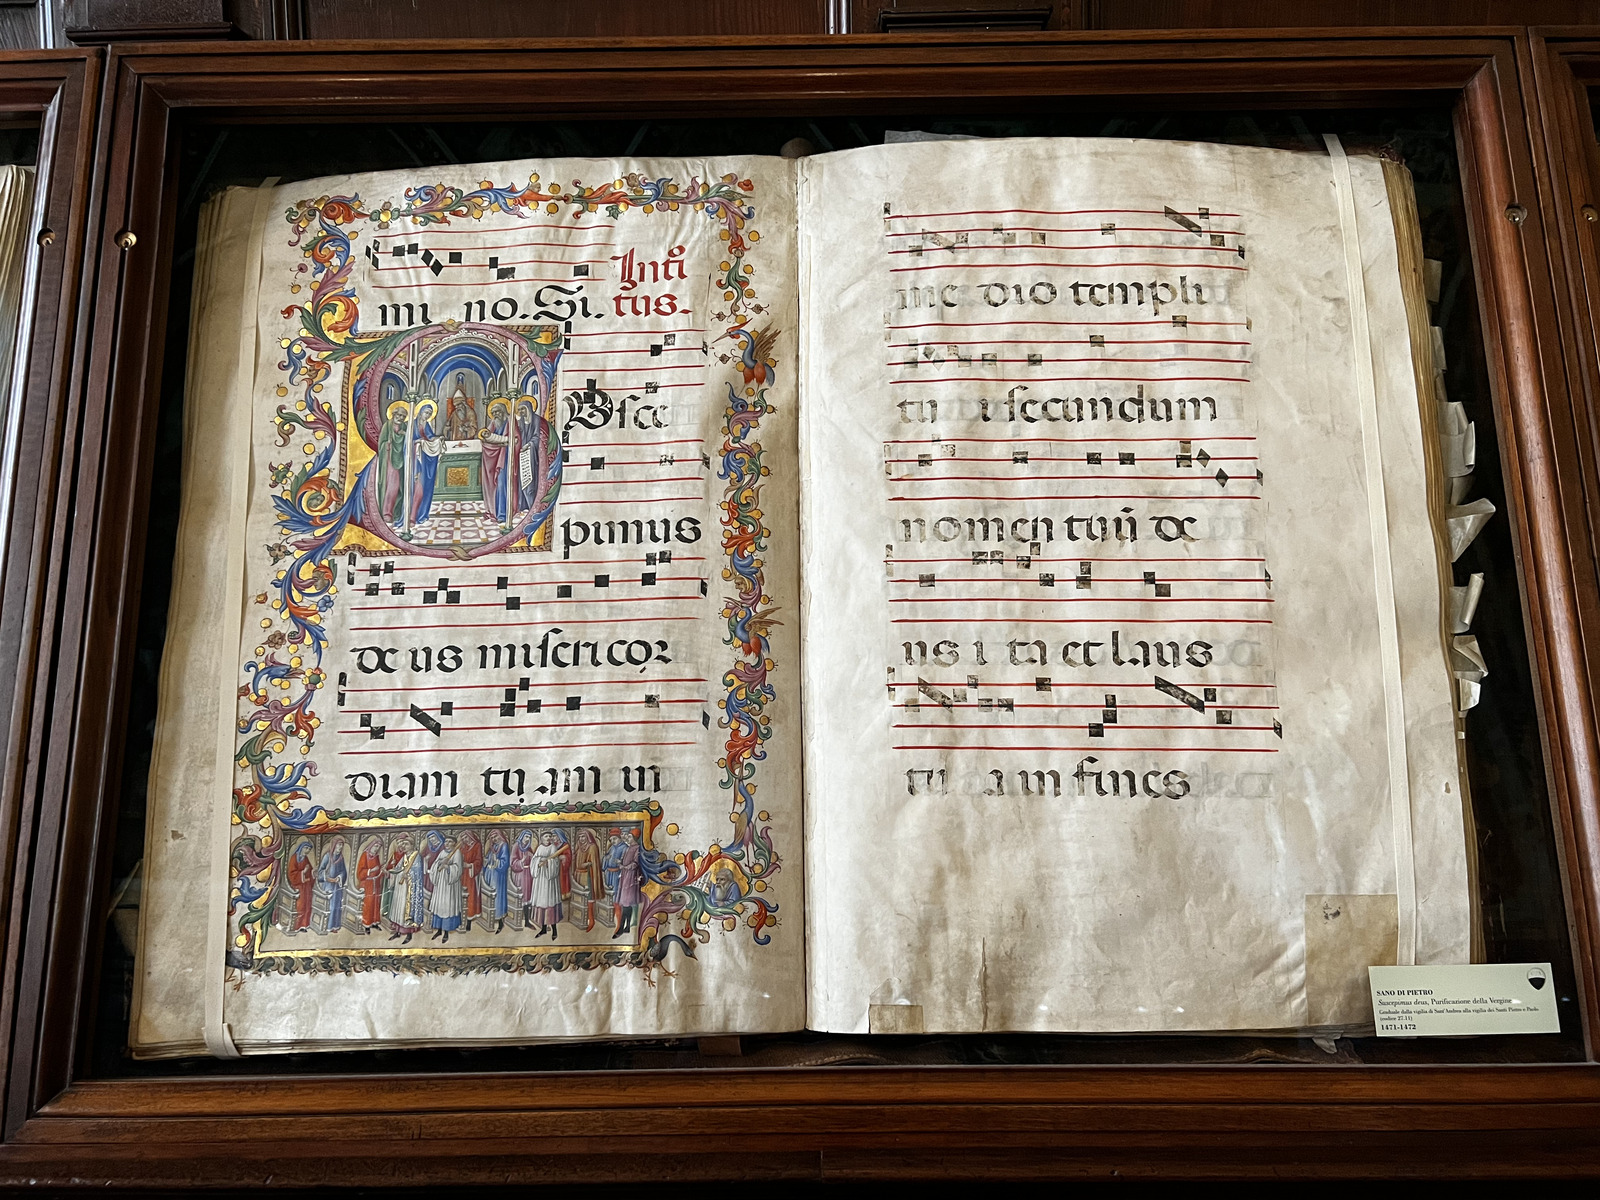 Intͥ
mi no. Si. tus.
Vsce
pimus
de us misericor
diam tu am in
me dio templi
tu i secundum
nomen tuū de
us i ta et laus
tu a in fines
SANO DI PIETRO
Suscepimus deus, Purificazione della Vergine
Graduale dalla vigilia di Sant'Andrea alla vigilia dei Santi Pietro e Paolo
(codice 27.11)
1471-1472